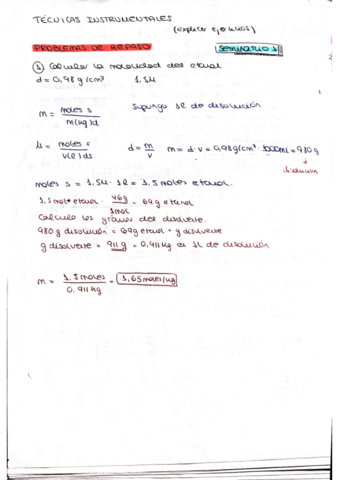 TÉCNICAS INSTRUMENTALES
(explicar ejercicios)
PROBLEMAS DE REPASO
SEMINARIO 1
① Calcular la molalidad del etanol
d = 0,98 g/cm³ 1.5M
m = moles s / m(kg)d
Supongo 1L de disolución
M = moles s / v(l) ds
d = m/v m = d·v = 0,98 g/cm³ · 1000ml = 980 g
disolución
moles s = 1.5M · 1L = 1.5 moles etanol.
1.5 mol etanol · 46g/1mol = 69 g etanol
Calculo los gramos del disolvente.
980 g disolución = 69g etanol + g disolvente
g disolvente = 911 g = 0,911 kg en 1L de disolución
m = 1.5 moles / 0.911 kg = 1,65 moles/kg